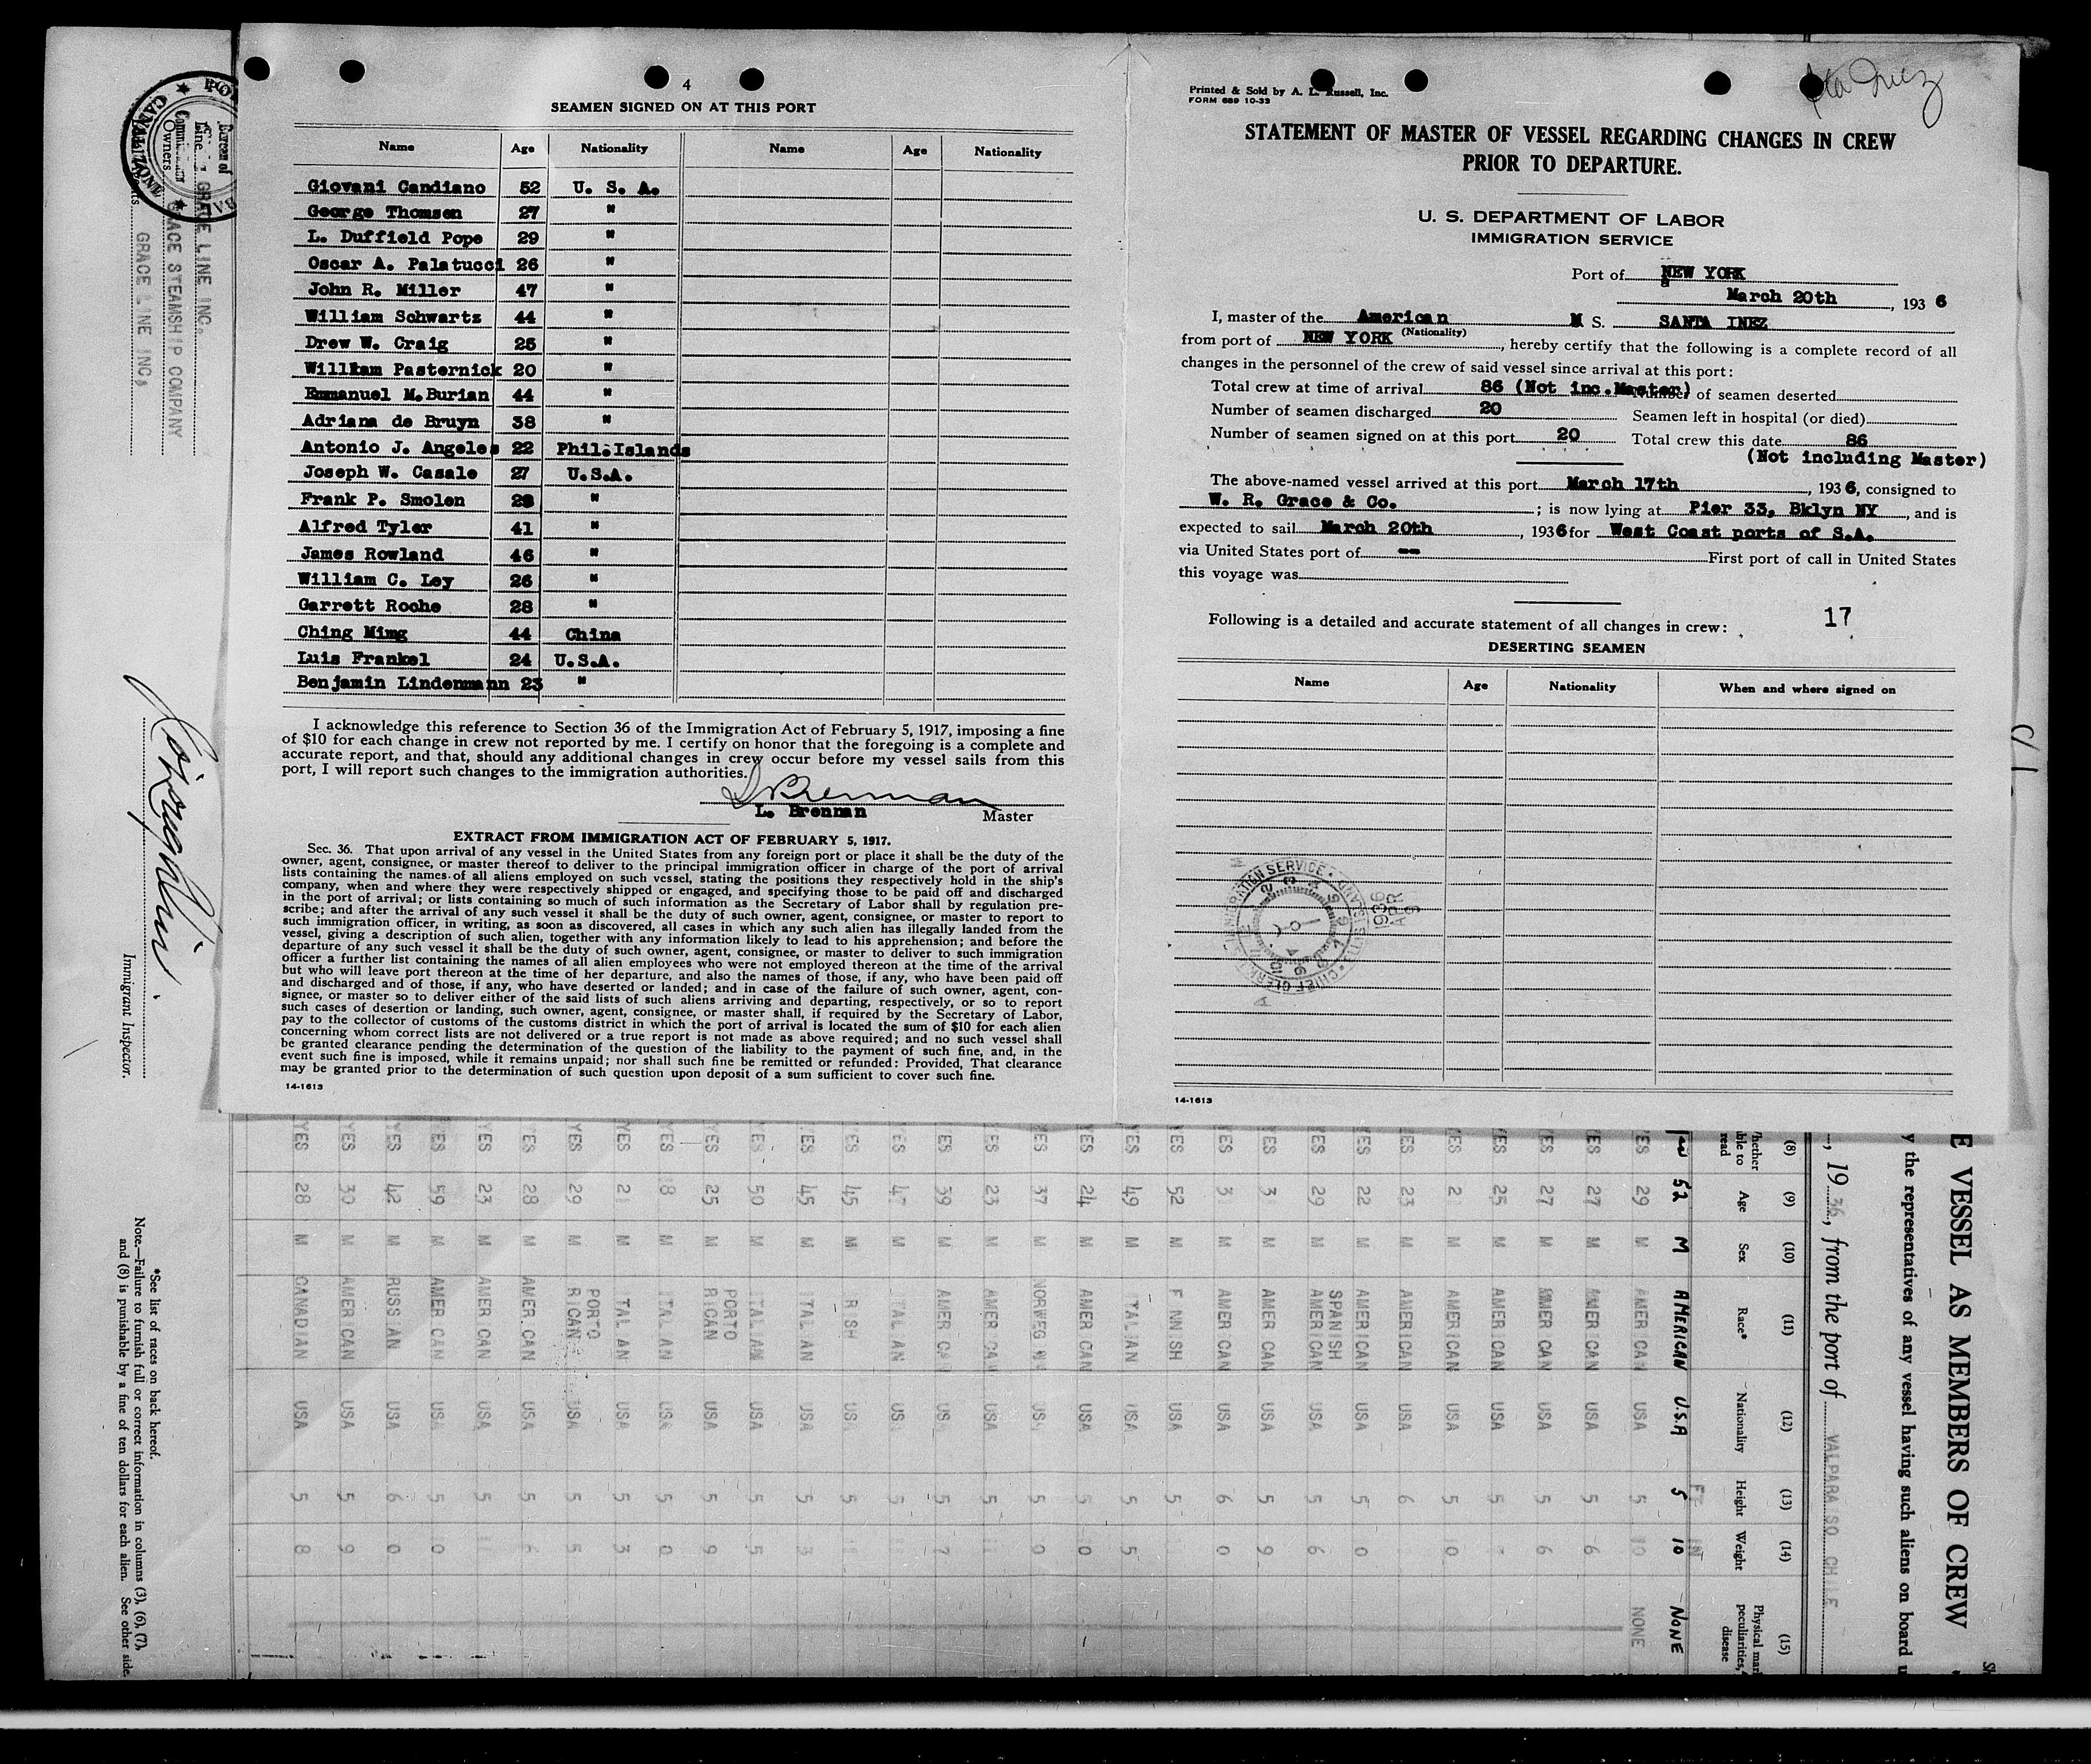 4
SEAMEN SIGNED ON AT THIS PORT
Name Age Nationality Name Age Nationality
Giovani Candiano 52 U. S. A.
George Thomsen 27 "
L. Duffield Pope 29 "
Oscar A. Palatucci 26 "
John R. Miller 47 "
William Schwartz 44 "
Drew W. Craig 25 "
William Pasternick 20 "
Emmanuel M.Burian 44 "
Adriana de Bruyn 38 "
Antonio J. Angeles 22 Phil.Islands
Joseph W. Casale 27 U.S.A.
Frank P. Smolen "
Alfred Tyler 41 "
James Rowland 46 "
William C. Ley 26 "
Garrett Roche 28 "
Ching Mimg 44 China
Luis Frankel 24 U.S.A.
Benjamin Lindenmann 23 "
I acknowledge this reference to Section 36 of the Immigration Act of February 5, 1917, imposing a fine
of $10 for each change in crew not reported by me. I certify on honor that the foregoing is a complete and
accurate report, and that, should any additional changes in crew occur before my vessel sails from this
port, I will report such changes to the immigration authorities.
L Brennan
L. Brennan Master
EXTRACT FROM IMMIGRATION ACT OF FEBRUARY 5, 1917.
Sec. 36. That upon arrival of any vessel in the United States from any foreign port or place it shall be the duty of the
owner, agent, consignee, or master thereof to deliver to the principal immigration officer in charge of the port of arrival
lists containing the names of all aliens employed on such vessel, stating the positions they respectively hold in the ship's
company, when and where they were respectively shipped or engaged, and specifying those to be paid off and discharged
in the port of arrival; or lists containing so much of such information as the Secretary of Labor shall by regulation pre-
scribe; and after the arrival of any such vessel it shall be the duty of such owner, agent, consignee, or master to report to
such immigration officer, in writing, as soon as discovered, all cases in which any such alien has illegally landed from the
vessel, giving a description of such alien, together with any information likely to lead to his apprehension; and before the
departure of any such vessel it shall be the duty of such owner, agent, consignee, or master to deliver to such immigration
officer a further list containing the names of all alien employees who were not employed thereon at the time of the arrival
but who will leave port thereon at the time of her departure, and also the names of those, if any, who have been paid off
and discharged and of those, if any, who have deserted or landed; and in case of the failure of such owner, agent, con-
signee, or master so to deliver either of the said lists of such aliens arriving and departing, respectively, or so to report
such cases of desertion or landing, such owner, agent, consignee, or master shall, if required by the Secretary of Labor,
pay to the collector of customs of the customs district in which the port of arrival is located the sum of $10 for each alien
concerning whom correct lists are not delivered or a true report is not made as above required; and no such vessel shall
be granted clearance pending the determination of the question of the liability to the payment of such fine, and, in the
event such fine is imposed, while it remains unpaid; nor shall such fine be remitted or refunded: Provided, That clearance
may be granted prior to the determination of such question upon deposit of a sum sufficient to cover such fine.
14-1613
Sta Inez
Printed & Sold by A. L. Russell, Inc.
FORM 689 10-33
STATEMENT OF MASTER OF VESSEL REGARDING CHANGES IN CREW
PRIOR TO DEPARTURE.
U. S. DEPARTMENT OF LABOR
IMMIGRATION SERVICE
Port of NEW YORK
March 20th, 1936
I, master of the American M S. SANTA INEZ
(Nationality)
from port of NEW YORK, hereby certify that the following is a complete record of all
changes in the personnel of the crew of said vessel since arrival at this port:
Total crew at time of arrival 86 (Not inc.Master) Number of seamen deserted
Number of seamen discharged 20 Seamen left in hospital (or died)
Number of seamen signed on at this port 20 Total crew this date 86
(Not including Master)
The above-named vessel arrived at this port March 17th, 1936, consigned to
W. R. Grace & Co.; is now lying at Pier 33, Bklyn NY, and is
expected to sail March 20th, 1936 for West Coast ports of S.A.
via United States port of -- First port of call in United States
this voyage was
17
Following is a detailed and accurate statement of all changes in crew:
DESERTING SEAMEN
Name Age Nationality When and where signed on
IMMIGRATION SERVICE
CHIEF CLERK
1936 APR 9
14-1613
CANAL ZONE
Bureau of
Line GRACE LINE INC.
Owners GRACE STEAMSHIP COMPANY
GRACE LINE INC.
Immigrant Inspector.
*See list of races on back hereof.
Note.—Failure to furnish full or correct information in columns (3), (6), (7),
and (8) is punishable by a fine of ten dollars for each alien. See other side.
E VESSEL AS MEMBERS OF CREW
y the representatives of any vessel having such aliens on board u
, 1936, from the port of VALPARAISO CHILE
(8) (9) (10) (11) (12) (13) (14) (15)
Whether able to read Age Sex Race* Nationality Height Weight Physical marks, peculiarities, disease
FT IN
52 M AMERICAN U.S.A 5 10 NONE
YES 29 M AMERICAN USA 5 10 NONE
YES 27 M AMERICAN USA 5 6
YES 27 M AMERICAN USA 5 6
YES 25 M AMERICAN USA 5
YES M AMERICAN USA 5 10
YES 23 M AMERICAN USA 6
YES 22 M AMERICAN USA 5 0
YES 29 M SPANISH AMERICAN USA 5 6
YES M AMERICAN USA 5 9
YES M AMERICAN USA 6 0
YES 52 M FINNISH USA 5
YES 49 M ITALIAN USA 5 5
YES 24 M AMERICAN USA 5
YES 37 M USA 5
YES 23 M AMERICAN USA 5
YES 39 M AMERICAN USA 5 7
YES 47 M ITALIAN USA
YES 45 M IRISH USA 5
YES 45 M ITALIAN USA 5
YES 50 M ITALIAN USA 5 5
YES 25 M PORTO RICAN USA 5 9
YES 18 M ITALIAN USA 5
YES M ITALIAN USA 5 3
YES 29 M PORTO RICAN USA 5 5
YES 28 M AMERICAN USA 5
YES 23 M AMERICAN USA 5
YES 59 M AMERICAN USA 5
YES 42 M RUSSIAN USA 6 0
YES 30 M AMERICAN USA 5 9
YES 28 M CANADIAN USA 5 8